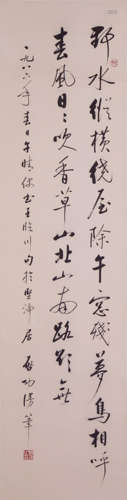 野水縱橫繞屋除午窗殘夢鳥相呼
春風日日吹香草山北山南路欲無
一九八六年春日午晴偶書王臨川句於堅淨居啟功漫筆